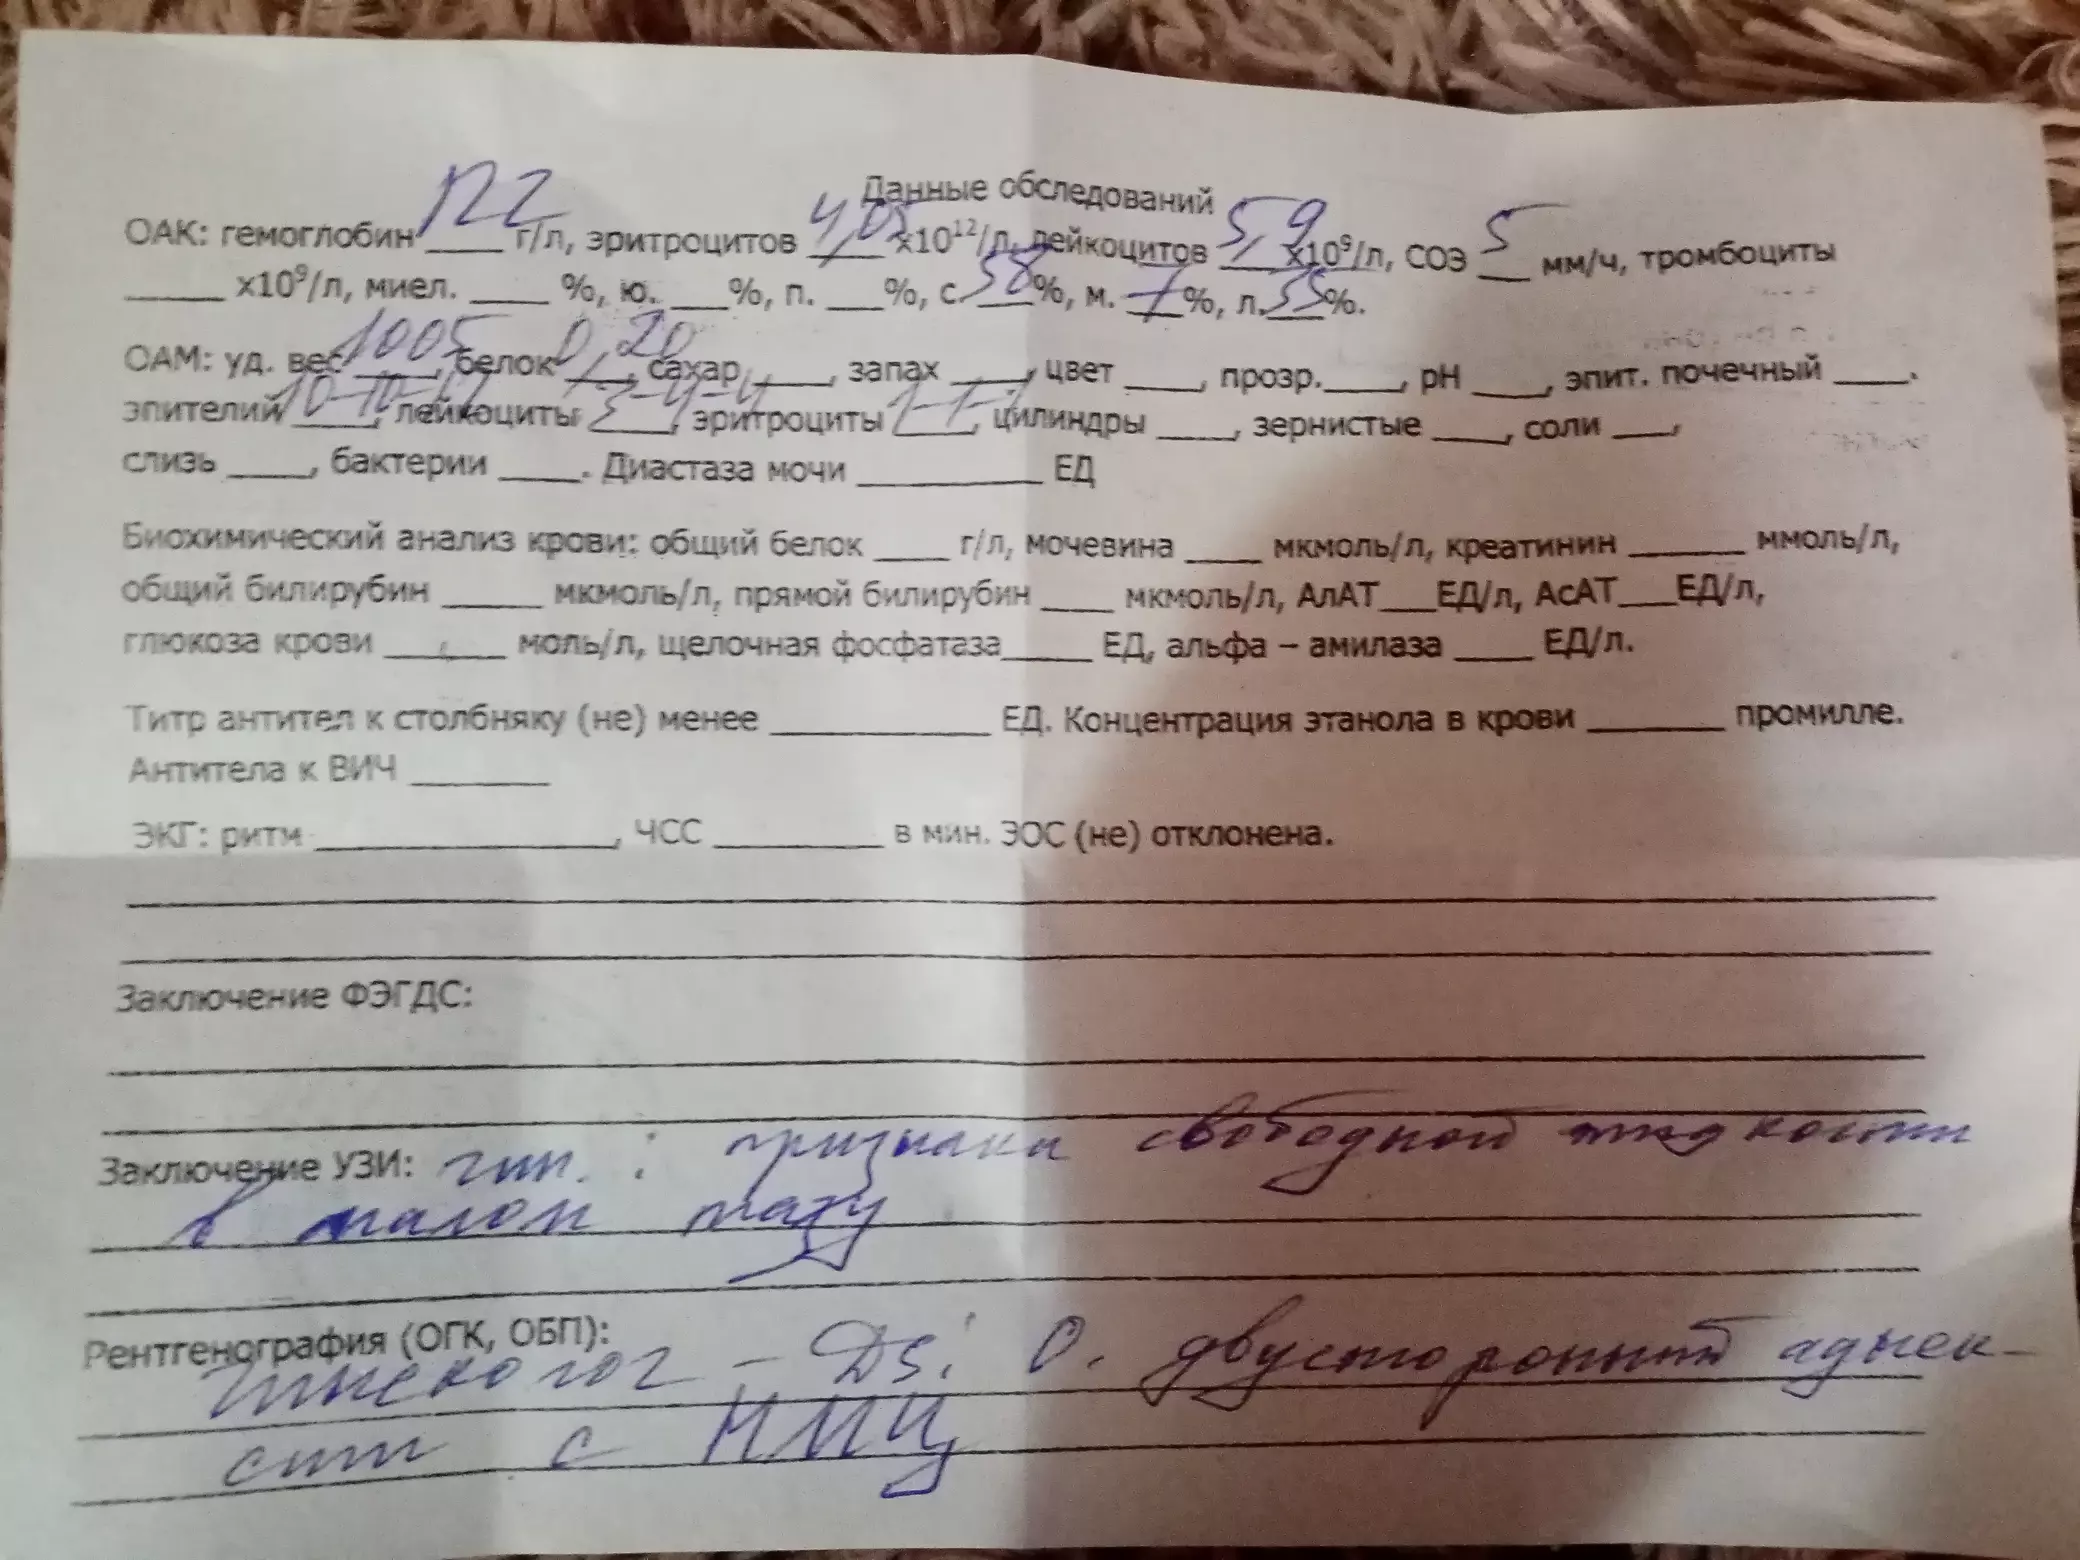 Данные обследований
ОАК: гемоглобин 122 г/л, эритроцитов 4,05 х10¹²/л, лейкоцитов 5,9 х10⁹/л, СОЭ 5 мм/ч, тромбоциты
_____ х10⁹/л, миел. ____ %, ю. ___%, п. ___%, с. 58%, м. 7%, л. 35%.
ОАМ: уд. вес 1005, белок 0,20, сахар ____, запах ____, цвет ____, прозр.____, pH ____, эпит. почечный ____.
эпителий 10-10-12, лейкоциты 3-4-4, эритроциты 1-1-1, цилиндры ____, зернистые ____, соли ___,
слизь ____, бактерии ____. Диастаза мочи _________ ЕД
Биохимический анализ крови: общий белок ____ г/л, мочевина ____ мкмоль/л, креатинин ______ ммоль/л,
общий билирубин _____ мкмоль/л, прямой билирубин ____ мкмоль/л, АлАТ___ЕД/л, АсАТ___ЕД/л,
глюкоза крови ___,___ моль/л, щелочная фосфатаза_____ ЕД, альфа – амилаза ____ ЕД/л.
Титр антител к столбняку (не) менее ___________ ЕД. Концентрация этанола в крови _______ промилле.
Антитела к ВИЧ _______
ЭКГ: ритм _______________, ЧСС _________ в мин. ЭОС (не) отклонена.
Заключение ФЭГДС:
Заключение УЗИ: гин. : признаки свободной жидкости
в малом тазу
Рентгенография (ОГК, ОБП):
Гинеколог – Ds: О. двусторонний аднек-
сит с НМЦ